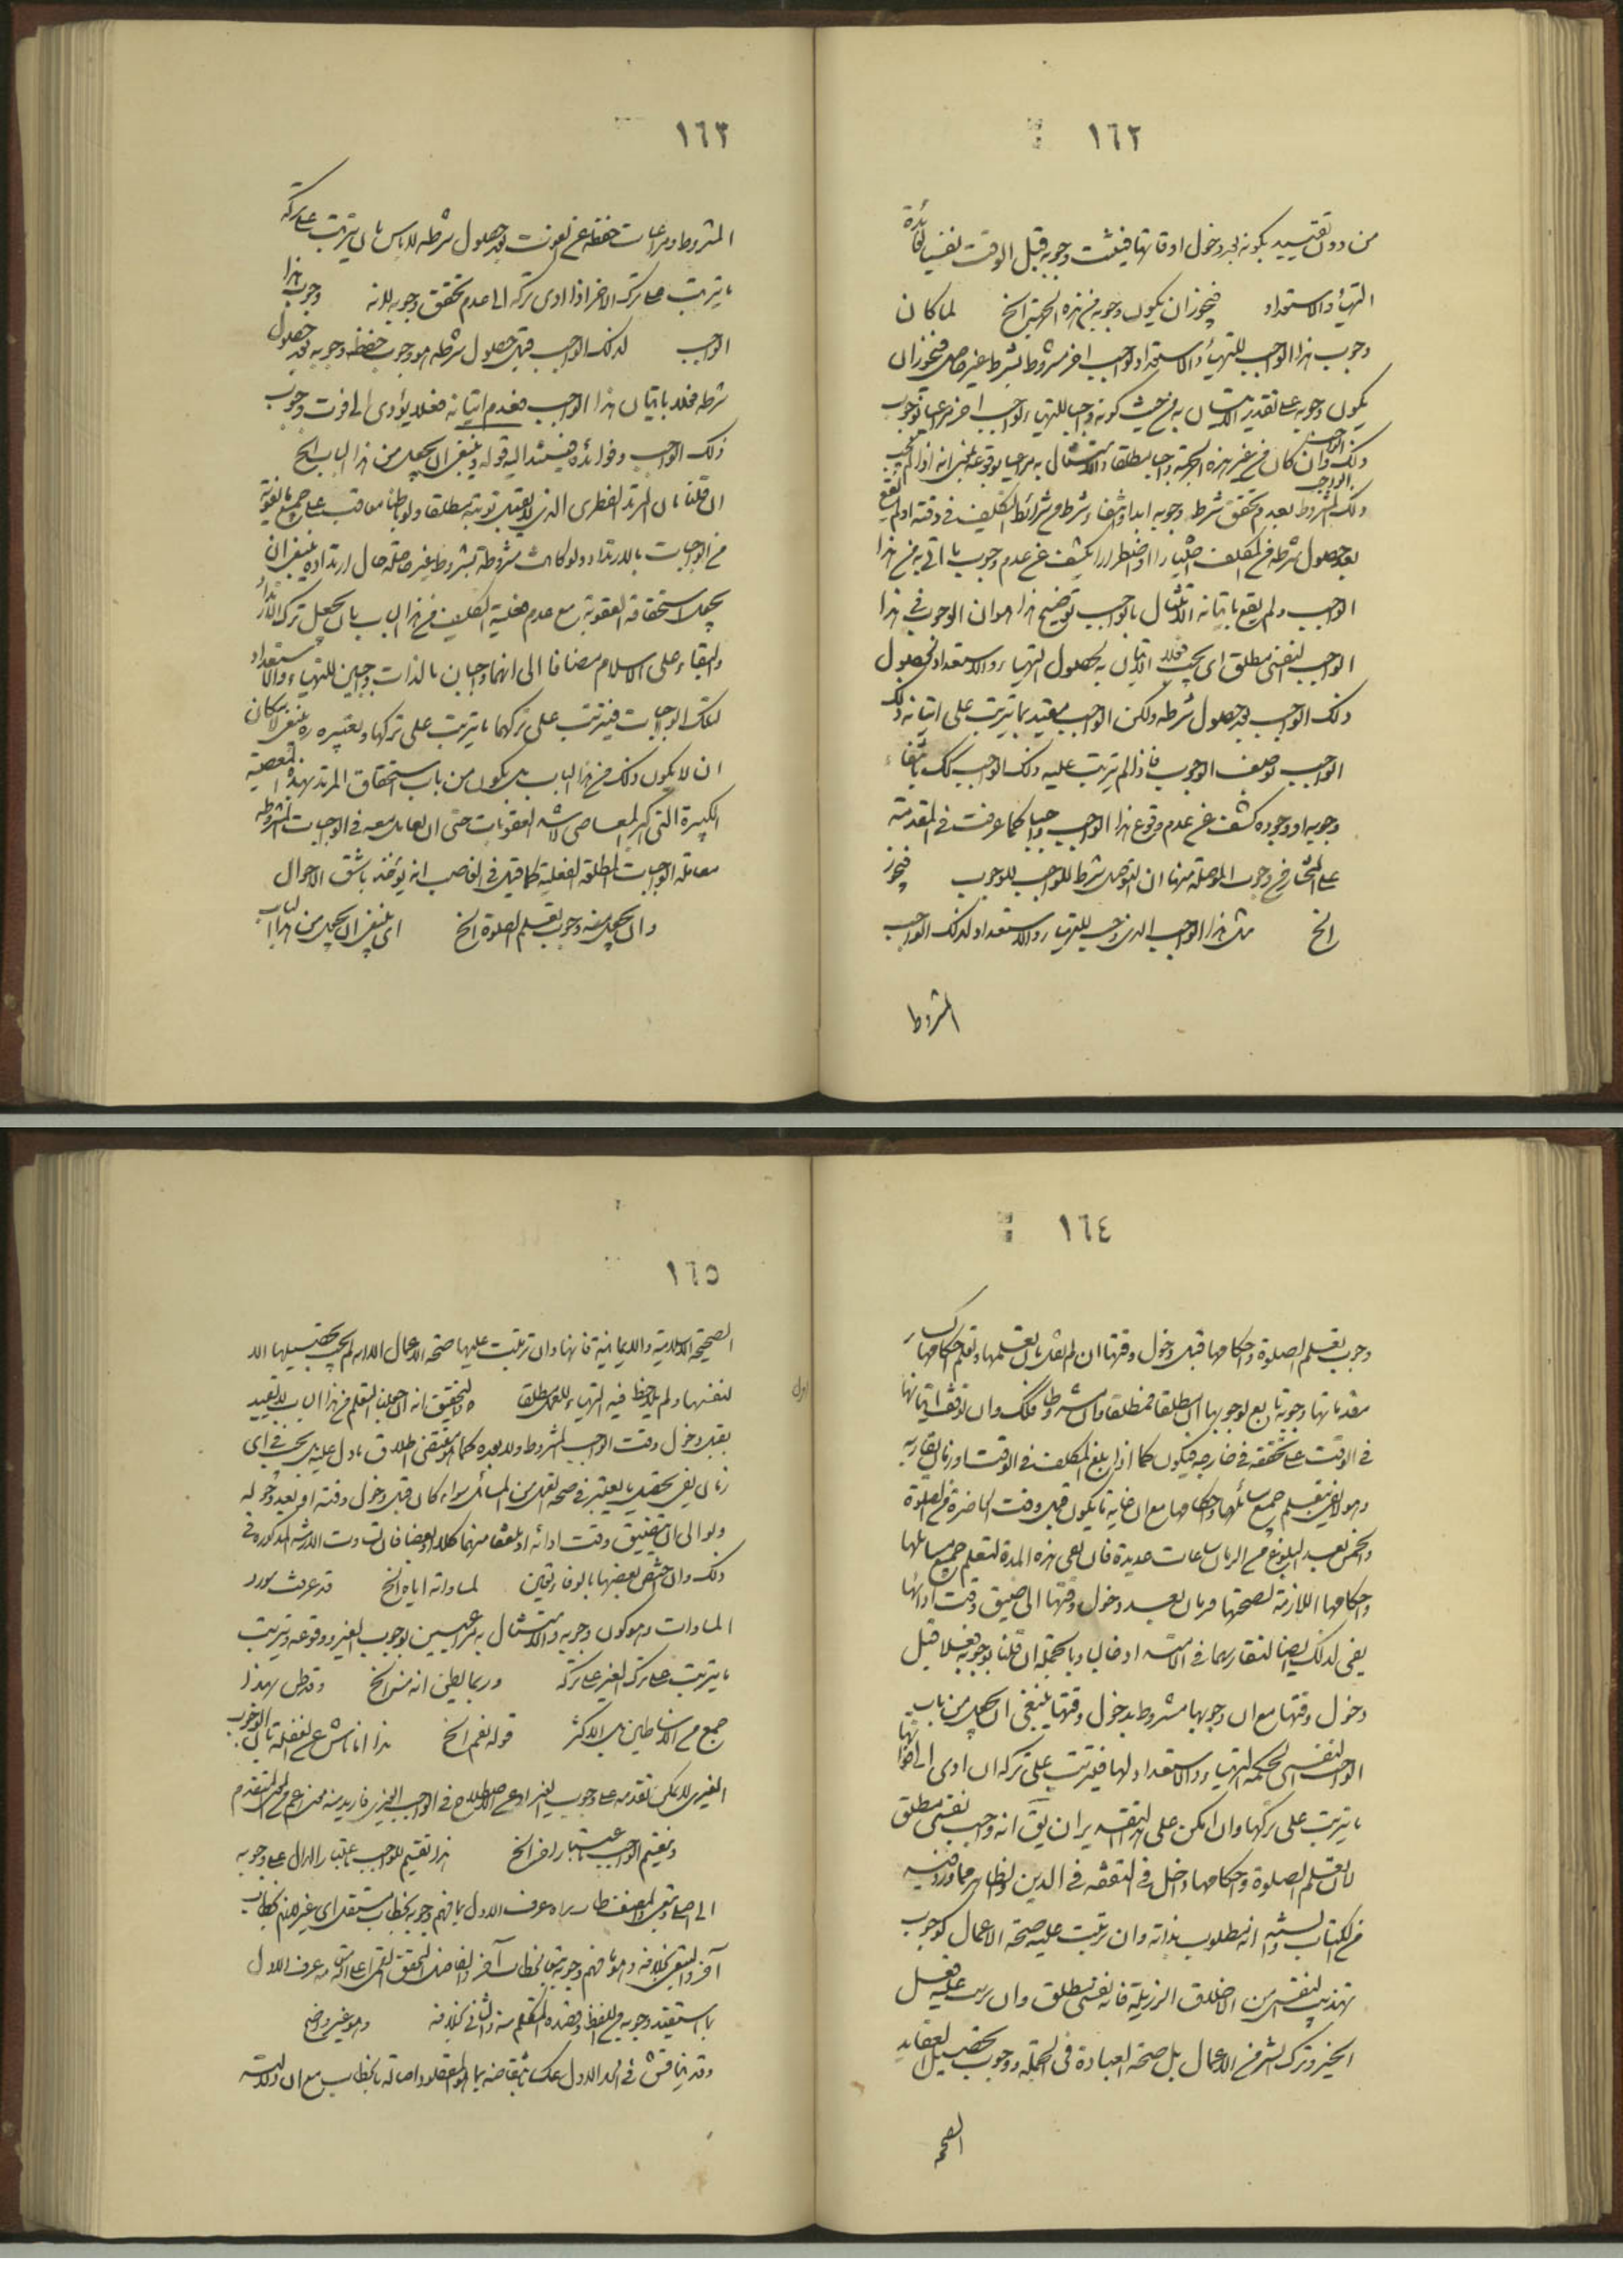 ١٦٢
من دون تقييد بكونه بعد دخول اوقاتها فيثبت وجوبه قبل الوقت نفسيا لفائدة
التهيأ والاستعداد فيجوز ان يكون وجوبه من هذه الجهة الخ لما كان
وجوب هذا الواجب للتهيأ والاستعداد لواجب اخر مشروط بشرط غير حاصل فيجوز ان
يكون وجوبه على تقدير الاتيان به من حيث كونه واجبا للتهياء لواجب اخر مراعيا بوجوب
ذلك الواجب وان كان من غير هذه الجهة واجبا مطلقا والامتثال به مراعيا بوقوعه بمعنى انه اذا لم يجب
ذلك المشروط بعدم تحقق شرط وجوبه ابدا وانتفاء شرط من شرائط التكليف فى وقته او لم يقع
بعد حصول شرطه من المكلف اختيارا او اضطرارا يكشف عن عدم وجوب ما اتى به من هذا
الواجب ولم يقع باتيانه الامتثال بالواجب توضيح هذا هو ان الوجوب فى هذا
الواجب النفسى مطلق اى يجب فعلا الاتيان به لحصول التهياء والاستعداد لحصول
ذلك الواجب بعد حصول شرطه ولكن الواجب مقيد بما يترتب على اتيانه ذلك
الواجب بوصف الوجوب فاذا لم يترتب عليه ذلك الواجب كك بانتفاء
وجوبه او وجوده كشف عن عدم وقوع هذا الواجب واجبا كما عرفت فى المقدمة
على المختار من وجوب الموصلة منها ان التوصل شرط للواجب لا للوجوب فيجوز
الخ مثل هذا الواجب الذى وجب للتهياء والاستعداد لذلك الواجب
المشروط
١٦٣
المشروط ومراعات حفظه عن الفوت بعد حصول شرطه لا باس بان يترتب على تركه
ما يترتب على ترك الاخر اذا ادى تركه الى عدم تحقق وجوبه لانه وجوب هذا
الواجب لذلك الواجب قبل حصول شرطه هو وجوب حفظه وجوبه بعد حصول
شرطه فعلا باتيان هذا الواجب فعدم اتيانه فعلا يؤدى الى فوت وجوب
ذلك الواجب وفوائده فيستند اليه قوله وينبغى ان يجعل من هذا الباب الخ
ان قلنا بان المرتد الفطرى الذى لا يقبل توبته مطلقا ولو باطنا معاقب على جميع ما يفوته
من الواجبات بالارتداد ولو كانت مشروطة بشروط غير حاصلة حال ارتداده ينبغى ان
يجعل استحقاقه العقوبة مع عدم فعلية التكليف من هذا الباب بان يجعل ترك الارتداد
والبقاء على الاسلام مضافا الى انهما واجبان بالذات واجبين للتهياء والاستعداد
لتلك الواجبات فيترتب على تركهما ما يترتب على تركها وتعبيره ره بينبغى لامكان
ان لا يكون ذلك من هذا الباب بل يكون من باب استحقاق المرتد بهذه المعصية
الكبيرة التى اكبر المعاصى لاشد العقوبات حتى ان يعامل معه فى الواجبات المشروطه
معاملة الواجبات المطلقة الفعلية كما قيل فى الغاصب انه يؤخذ باشق الاحوال
وان يجعل منه وجوب تعلم الصلوة الخ اى ينبغى ان يجعل من هذا الباب
١٦٤
وجوب تعلم الصلوة واحكامها قبل دخول وقتها ان لم نقل بان تعلمها وتعلم احكامها كساير
مقدماتها وجوبه تابع لوجوبها ان مطلقا فمطلقا وان مشروطا فكك وان توقف اتيانها
فى الوقت على تحققه فى خارجه فيكون كما اذا بلغ المكلف فى الوقت او زمان يقاربه
وهو لا يفى بتعلم جميع مسائلها واحكامها مع ان غايه ما يكون قبل وقت الحاضرة من الصلوة
والخمس بعد البلوغ من الزمان ساعات عديدة فان يفى هذه المدة لتعلم جميع مسائلها
واحكامها اللازمة لصحتها فزمان بعد دخول وقتها الى ضيق وقت ادائها
يفى لذلك ايضا لتقاربهما فى الامتداد غالبا وبالجملة ان قلنا بوجوبه فعلا قبل
دخول وقتها مع ان وجوبها مشروط بدخول وقتها ينبغى ان يجعل من باب
الواجب النفسى لحكمة التهياء والاستعداد لها فيترتب على تركه ان ادى الى فواتها
ما يترتب على تركها وان امكن على هذا التقدير ان يق انه واجب نفسى مطلق
لان تعلم الصلوة واحكامها داخل فى التفقه فى الدين والظاهر مما ورد فيه
من الكتاب والسنه انه مطلوب بذاته وان ترتب عليه صحة الاعمال كوجوب
تهذيب النفس من الاخلاق الرذيلة فانه نفسى مطلق وان رتب عليه فعل
الخير وترك الشر من الاعمال بل صحة العبادة فى الجملة ووجوب تحصيل العقايد
الصحيحة
١٦٥
الصحيحة الاسلامية والايمانية فانها وان ترتبت عليها صحة الاعمال الا انه لم يجب تحصيلها الا
لنفسها ولم يلاحظ فيه التهياء للعمل مطلقا والتحقيق انه ان جعلنا التعلم من هذا الباب لا يتقييد
بقبل دخول وقت الواجب المشروط ولا بعده كما هو مقتضى اطلاق ما دل عليه بل يجب فى اى
زمان يفى بتحصيل ما يعتبر فى صحة العمل من المسائل سواء كان قبل دخول وقته او بعد دخوله
ولو الى ان يتضيق وقت ادائه او ملفقا منهما كلا او بعضا فان تساوت الازمنه المذكوره فى
ذلك وان اختص بعضها بالوفا تعين لمساواته اياه الخ قد عرفت مورد
المساوات وهو كون وجوبه والامتثال به مراعيين بوجوب الغير ووقوعه وترتب
ما يترتب على ترك الغير على تركه وربما يظن انه منه الخ وقد ظن بهذا
جمع من الاساطين بل الاكثر قوله نعم الخ هذا ناش عن الغفلة بان الوجوب
الغيرى لا يمكن تقدمه على وجوب الغير او عن الاصطلاح فى الواجب الغيرى فاريد منه معنى اعم من المعنى المتقدم
وينقسم الواجب باعتبار اخر الخ هذا تقسيم للواجب باعتبار الدال على وجوبه
الى اصلى وتبعى والمصنف طاب ثراه عرف الاول بما فهم وجوبه بخطاب مستقل اى غير لازم لخطاب
آخر والتبعى بخلافه وهو ما فهم وجوبه تبعا لخطاب آخر والفاضل المحقق القمى اعلى الله مقامه عرف الاول
بما استفيد وجوبه من اللفظ وقصده المتكلم منه والثانى بخلافه وهو غير واضح